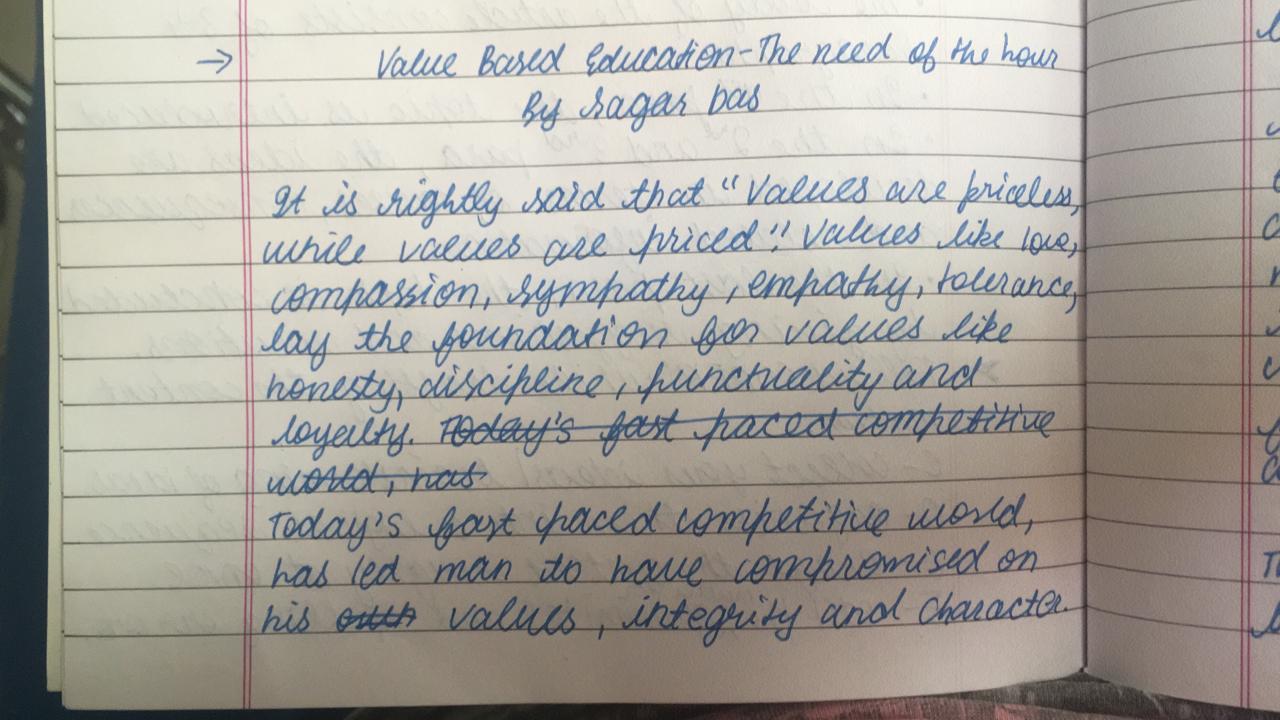 → Value Based Education-The need of the hour
By Sagar Das
It is rightly said that "Values are priceless,
while values are priced". Values like love,
compassion, sympathy, empathy, tolerance,
lay the foundation for values like
honesty, discipline, punctuality and
loyalty. Today's fast paced competitive
world, has
Today's fast paced competitive world,
has led man to have compromised on
his values, integrity and character.